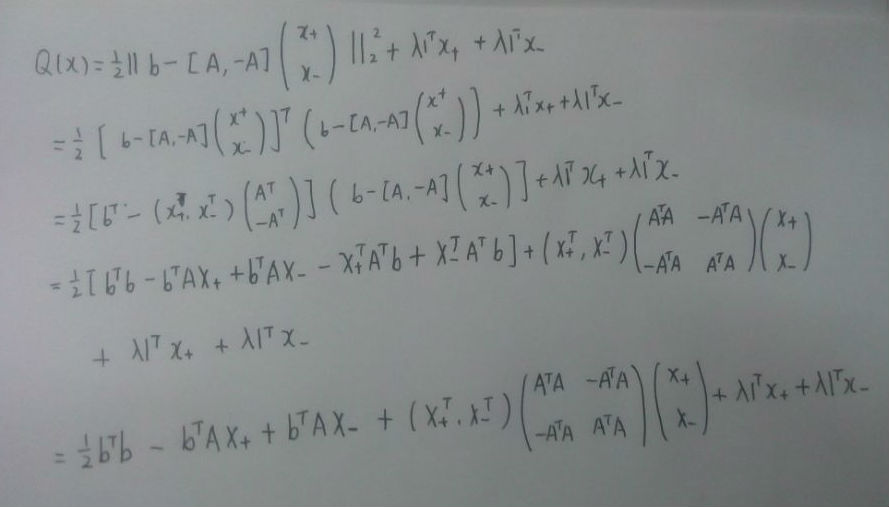 Q(x) = ½‖b − [A, −A] (x₊ ; x₋)‖₂² + λ1ᵀx₊ + λ1ᵀx₋
= ½ [b − [A, −A] (x⁺ ; x₋)]ᵀ (b − [A, −A] (x⁺ ; x₋)) + λ1ᵀx₊ + λ1ᵀx₋
= ½ [bᵀ − (x₊ᵀ, x₋ᵀ) (Aᵀ ; −Aᵀ)] (b − [A, −A] (x₊ ; x₋)] + λ1ᵀx₊ + λ1ᵀx₋
= ½ [bᵀb − bᵀAx₊ + bᵀAx₋ − x₊ᵀAᵀb + x₋ᵀAᵀb] + (x₊ᵀ, x₋ᵀ) (AᵀA −AᵀA ; −AᵀA AᵀA) (x₊ ; x₋)
+ λ1ᵀx₊ + λ1ᵀx₋
= ½bᵀb − bᵀAx₊ + bᵀAx₋ + (x₊ᵀ, x₋ᵀ) (AᵀA −AᵀA ; −AᵀA AᵀA) (x₊ ; x₋) + λ1ᵀx₊ + λ1ᵀx₋